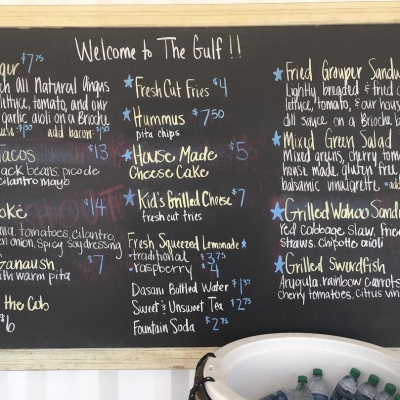 Welcome to The Gulf!!
ger $7.75
ch all Natural Angus
lettuce, tomato, and our
garlic aioli on a Brioche
add bacon:
Tacos $13
ack beans, pico de
cilantro mayo
oké $14
tomatoes, cilantro,
onion, spicy soy dressing
Ganoush $7
with warm pita
the Cob
$6
Fresh Cut Fries $4
Hummus $7.50
pita chips
House Made $5
Cheese Cake
Kid's Grilled Cheese $7
fresh cut fries
Fresh Squeezed Lemonade
• traditional $3.75
• raspberry $4
Dasani Bottled Water
Sweet & Unsweet Tea $2.75
Fountain Soda $2.75
Fried Grouper Sandw
Lightly breaded & fried
lettuce, tomato, & our hous
dill sauce on a Brioche b
Mixed Green Salad
Mixed greens, cherry toma
house made, gluten free,
balsamic vinaigrette
Grilled Wahoo Sand
Red Cabbage Slaw, Fried
Straws, Chipotle aioli
Grilled Swordfish
Arugula, rainbow carrots
cherry tomatoes, citrus vin